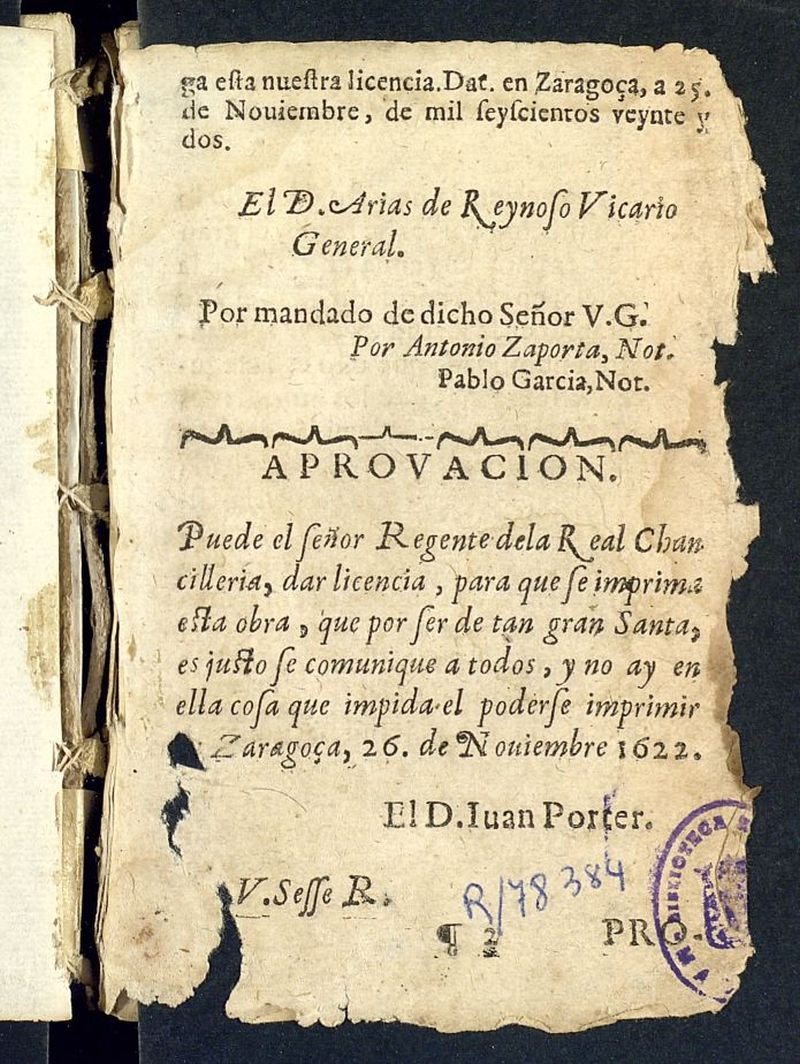 ga eſta nueſtra licencia. Dat. en Zaragoça, a 25.
de Nouiembre, de mil ſeyſcientos veynte y
dos.
El D. Arias de Reynoſo Vicario
General.
Por mandado de dicho Señor V.G.
Por Antonio Zaporta, Not.
Pablo Garcia, Not.
APROVACION.
Puede el ſeñor Regente dela Real Chan
cilleria, dar licencia, para que ſe imprima
eſta obra, que por ſer de tan gran Santa,
es juſto ſe comunique a todos, y no ay en
ella coſa que impida el poderſe imprimir
Zaragoça, 26. de Nouiembre 1622.
El D. Iuan Porter.
V. Seſſe R.
R/78384
¶ 2 PRO-
BIBLIOTECA